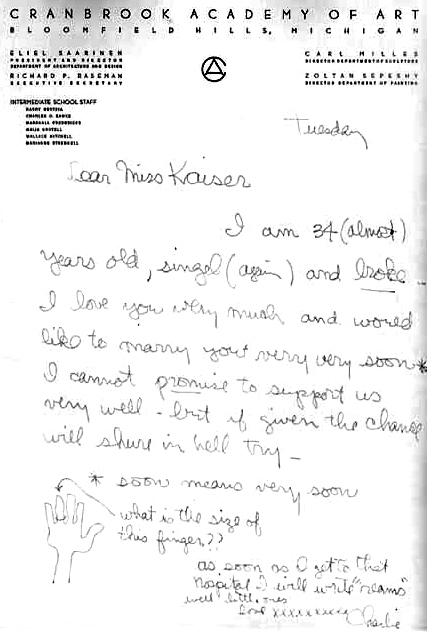 CRANBROOK ACADEMY OF ART
BLOOMFIELD HILLS, MICHIGAN
ELIEL SAARINEN
PRESIDENT AND DIRECTOR
DEPARTMENT OF ARCHITECTURE AND DESIGN
RICHARD P. RASEMAN
EXECUTIVE SECRETARY
CARL MILLES
DIRECTOR DEPARTMENT OF SCULPTURE
ZOLTAN SEPESHY
DIRECTOR DEPARTMENT OF PAINTING
INTERMEDIATE SCHOOL STAFF
HARRY BERTOIA
CHARLES O. EAMES
MARSHALL FREDERICKS
MAIJA GROTELL
WALLACE MITCHELL
MARIANNE STRENGELL
Tuesday
Dear Miss Kaiser
I am 34 (almost)
years old, singel (again) and broke.
I love you very much and would
like to marry you very very soon*
I cannot promise to support us
very well - but if given the chance
will shure in hell try -
* soon means very soon
what is the size of
this finger??
as soon as I get to that
hospital I will write "reams"
well little ones
love xxxxxxxxxx Charlie